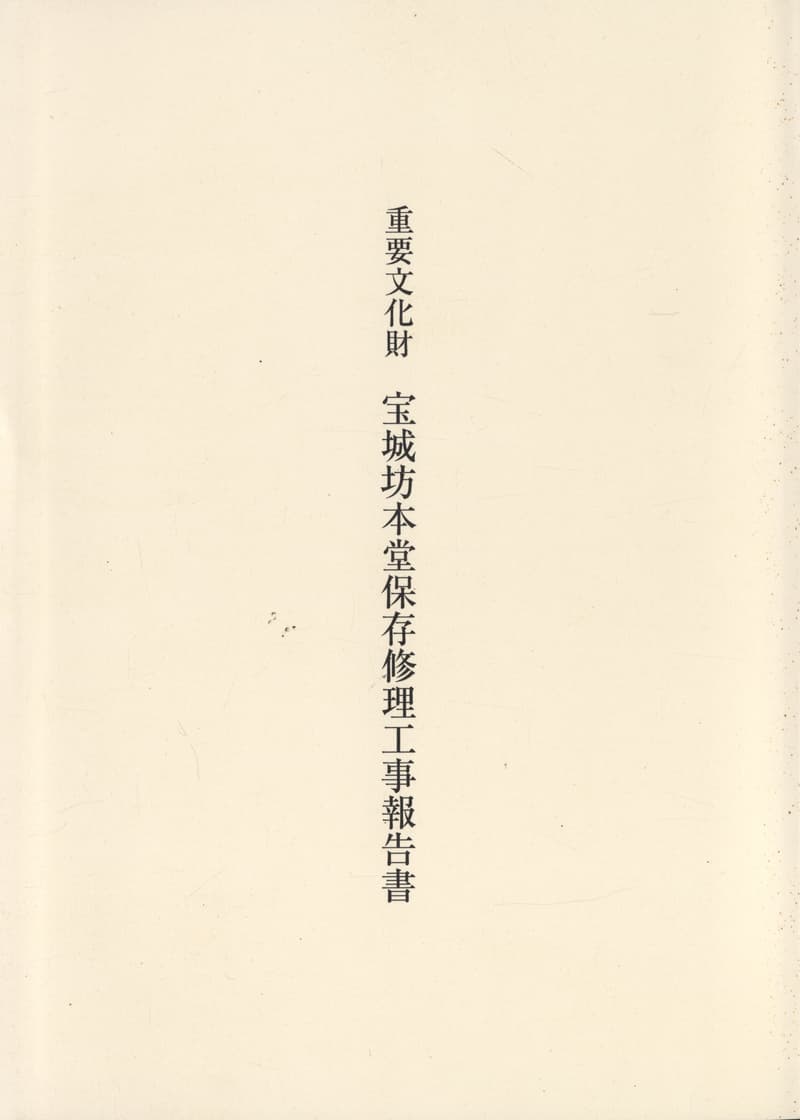 重要文化財 宝城坊本堂保存修理工事報告書